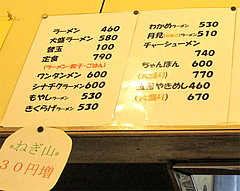 ラーメン 460
大盛ラーメン 580
替玉 100
定食 790
(ラーメン・餃子・ごはん)
ワンタンメン 600
シナチクラーメン 600
もやしラーメン 530
きくらげラーメン 530
わかめラーメン 530
月見ラーメン 510
チャーシューメン
740
ちゃんぽん 600
(大盛り) 770
五目やきめし 460
(大盛り) 670
*ねぎ山*
30円増